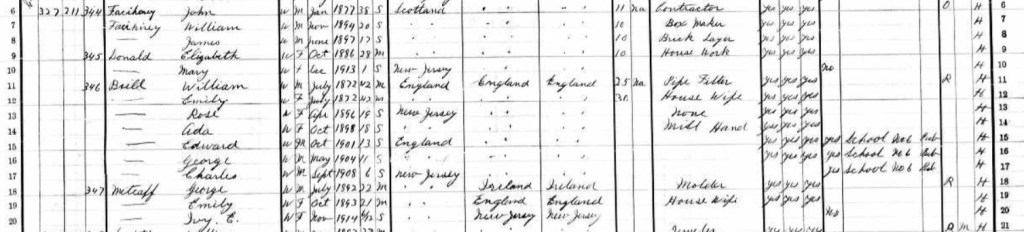 6 327 211 344 Fairhirey John W M Jan 1877 38 S Scotland " " 11 Na Contractor yes yes yes O H 6
7 Fairhirey William W M Nov 1894 20 S " " " " 10 Box Maker yes yes yes H 7
8 — James W M June 1897 17 S " " " " 10 Brick Layer yes yes yes H 8
9 345 Donald Elizabeth W F Oct 1886 28 M " " " " 10 House Work yes yes yes H 9
10 — Mary W F Dec 1913 1 S New Jersey " " no H 10
11 346 Brill William W M July 1872 42 M England England England 25 Na Pipe Fitter yes yes yes R H 11
12 — Emily W F July 1872 42 M " " " " 30 House Wife yes yes yes H 12
13 — Rose W F Apr 1896 19 S New Jersey " " None yes yes yes H 13
14 — Ada W F Oct 1898 15 S " " " " Mill Hand yes yes yes H 14
15 — Edward W M Oct 1901 13 S England " " yes yes yes yes School No 6 Pub H 15
16 — George W M May 1904 11 S " " " " yes yes yes yes School No 6 Pub H 16
17 — Charles W M Sept 1908 6 S New Jersey " " yes School No 6 Pub H 17
18 347 Metcalf George W M July 1892 22 M " " Ireland Ireland Molder yes yes yes R H 18
19 — Emily W F Oct 1893 21 M " " England England House Wife yes yes yes H 19
20 — Ivy E. W F Nov 1914 S " " New Jersey New Jersey No H 20
R M H 21